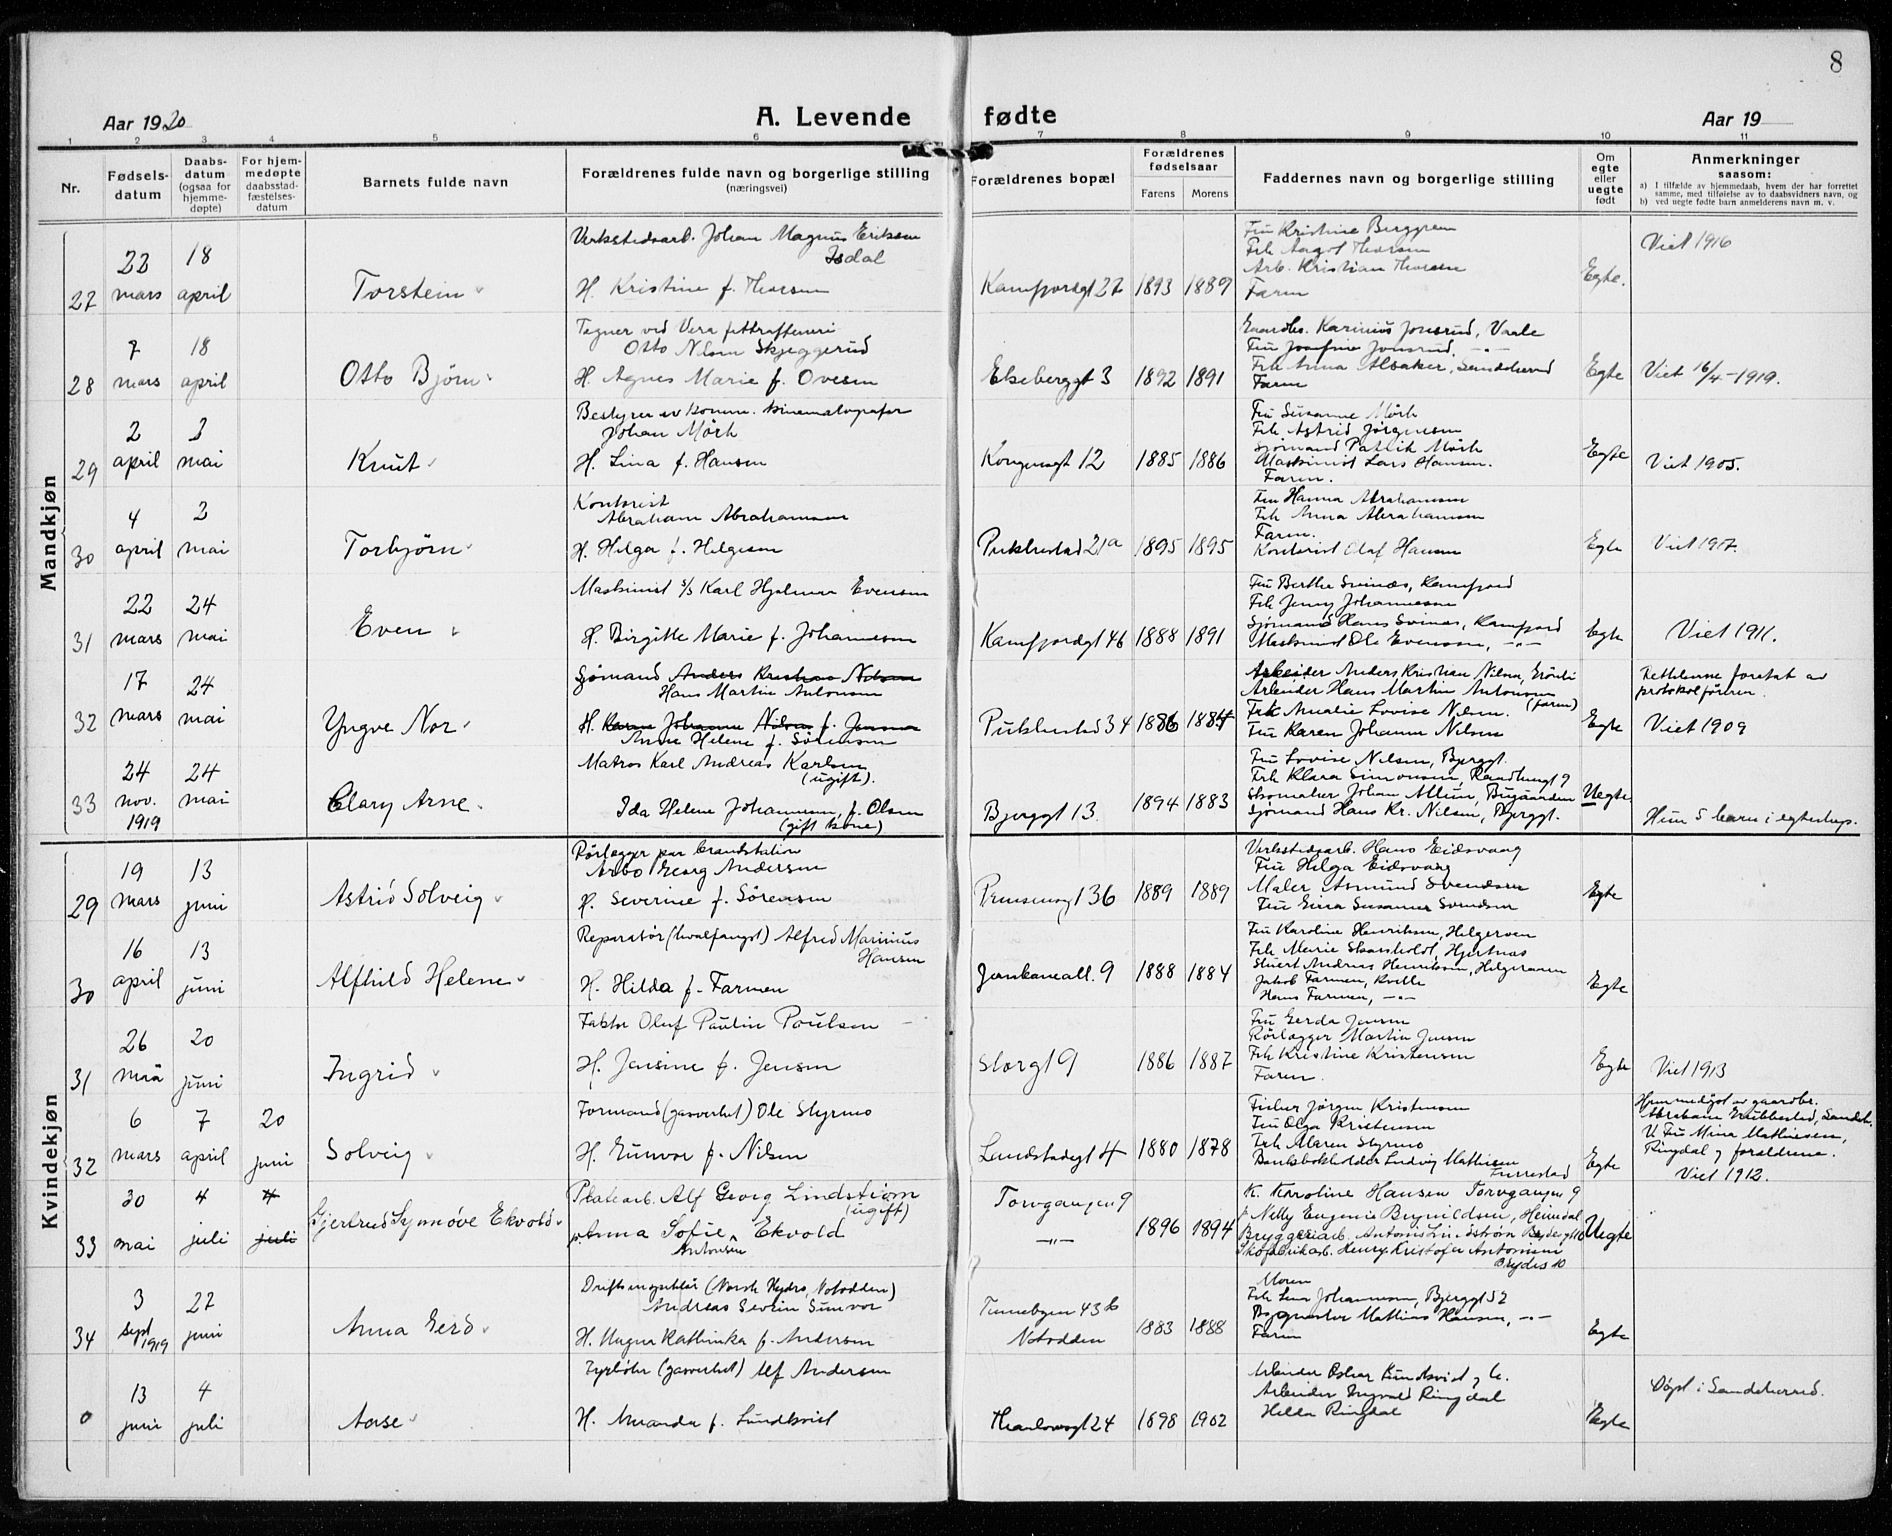 8
Aar 1920
A. Levende fødte
Aar 19
1 2 3 4 5 6 7 8 9 10 11
Nr.
Fødselsdatum
Daabsdatum (ogsaa for hjemmedøpte)
For hjemmedøpte daabsstadfæstelsesdatum
Barnets fulde navn
Forældrenes fulde navn og borgerlige stilling (næringsvei)
Forældrenes bopæl
Forældrenes fødselsaar
Farens Morens
Faddernes navn og borgerlige stilling
Om egte eller uegte født
Anmerkninger saasom:
a) I tilfælde av hjemmedaab, hvem der har forrettet samme, med tilføielse av to daabsvidners navn, og
b) ved uegte fødte barn anmelderens navn m. v.
Mandkjøn
27
22 mars
18 april
Torstein
Verkstedsarb. Johan Magnus Eriksen
Isdal
H. Kristine f. Thorsen
Kamfjordgt 27
1893 1889
Fru Kristine Berggren
Frk Aagot Thorsen
Arb. Kristian Thorsen
Faren
Egte.
Viet 1916
28
7 mars
18 april
Otto Bjørn
Tegner ved Vera
Otto Nilsen Skjeggerud
H. Agnes Marie f. Ovesen
Elsebergt 3
1892 1891
Gaardbr. Karinius Jonsrud, Vaale
Fru Josefine Jonsrud, -"-
Frk Anna Albaker, Sandeherred
Faren
Egte
Viet 16/4-1919.
29
2 april
3 mai
Knut
Bestyrer av komm. kinematografer
Johan Mörk
H. Lina f. Hansen
Kongensgt 12
1885 1886
Fru Susanne Mörk
Frk Astrid Jørgensen
Sjømand Patrik Mörk
Maskinist Lars Hansen.
Faren.
Egte
Viet 1905.
30
4 april
2 mai
Torbjørn
Kontorist
Abraham Abrahamsen
H. Helga f. Helgesen
Pukkestad 21a
1895 1895
Fru Hanna Abrahamsen
Frk Anna Abrahamsen
Faren.
Kontorist Olaf Hansen
Egte
Viet 1917.
31
22 mars
24 mai
Even
Maskinist s/s Karl Hjalmar Evensen
H. Birgitte Marie f. Johannesen
Kamfjordgt 46
1888 1891
Fru Berthe Svinæs, Kamfjord
Frk Jenny Johannessen
Sjømand Hans Svinæs, Kamfjord
Maskinist Ole Evensen, -"-
Egte
Viet 1911.
32
17 mars
24 mai
Yngve Nor
Sjømand Anders Kristian Nilsen
Hans Martin Antonsen
H. Karen Johanne Nilsen f. Jensen
Anne Helene f. Sörensen
Pukkestad 34
1886 1884
Arbeider Anders Kristian Nilsen,
Arbeider Hans Martin Antonsen
(faren)
Frk Amalie Lovise Nilsen.
Fru Karen Johanne Nilsen
Egte
Rettelserne foretat av
protokolføreren.
Viet 1909
33
24 nov. 1919
24 mai
Clary Arne
Matros Karl Andreas Karlsen
(ugift).
Ida Helene Johannesen, f. Olsen
(gift kone)
Bjerggt 13
1894 1883
Fru Lovise Nilsen, Bjerggt.
Frk Klara Simonsen,
Skomaker Johan
Sjømand Hans Kr. Nilsen, Bjerggt.
Uegte
Hun 5 barn i egteskap.
Kvindekjøn
29
19 mars
13 juni
Astrid Solveig
Rörlegger paa brandstation
Arbo Georg Andersen
H. Severine f. Sörensen
Prinsensgt 36
1889 1889
Verkstedsarb. Hans Eidsvaag
Fru Helga Eidsvaag
Maler Asmund Svendsen
Fru Susanne Svendsen
Egte
30
16 april
13 juni
Alfhild Helene
Reparatör (hvalfangst) Alfred Marinius
Hansen
H. Hilda f. Farmen
Jernbaneall. 9
1888 1884
Fru Karoline Henriksen, Helgeroen
Frk Marie Skarsholdt, Hjertnæs
Stuert Andreas Henriksen, Helgeroen
Jakob Farmen, Kville
Hans Farmen, -"-
Egte
31
26 mai
20 juni
Ingrid
Faktor Oluf Paulin Poulsen
H. Jensine f. Jensen
Storgt 9
1886 1887
Fru Gerda Jensen
Rörlegger Martin Jensen
Frk Kristine Kristensen
Faren.
Egte
Viet 1913
32
6 mars
7 april
20 juni
Solveig
Formand (gasverket) Ole Styrmo
H. Gunvor f. Nilsen
Landstadsgt 4
1880 1878
Fisker Jörgen Kristensen
Fru Olga Kristensen
Frk Maren Styrmo
Bankbokholder Ludvig Mathisen
Furustad
Egte
Hjemmedöpt av gaardbr.
Abraham Sandeh.
V. Fru Mina Mathiesen,
Ringdal og forældrene.
Viet 1912.
33
30 mai
4 juli
4 juli
Gjertrud Synnöve Ekvold
Platearb. Alf Georg Lindström
(ugift)
p. Anna Sofie Ekvold
Antonsen
Torvgangen 9
-"-
1896 1894
K. Karoline Hansen Torvgangen 9
p. Nelly Eugenie Brynildsen, Heimdal
Bryggeriarb. Antonis Lindström
Skofabrikarb. Henry Kristofer Antonsen
Brydes 10
Uegte
34
3 sept 1919
27 juni
Anna Gerd
Driftsinspektör (Norsk Hydro, Notodden)
Andreas Severin Sunvor
H. Magna Kathinka f. Andersen
Tinnebyen 43 b
Notodden
1883 1888
Moren
Frk Lina Johannesen, Bjerggt 52
Bygmester Mathias Hansen, -"-
Faren
Egte
0
13 juni
4 juli
Aase
Fyrböter (gasverket) Alf Andersen
H. Amanda f. Lundkvist
Thaulowsgt 24
1898 1902
Arbeider Oskar Lundkvist,
Arbeider Ingvald Ringdal
Hilda Ringdal
Egte
Döpt i Sandeherred.